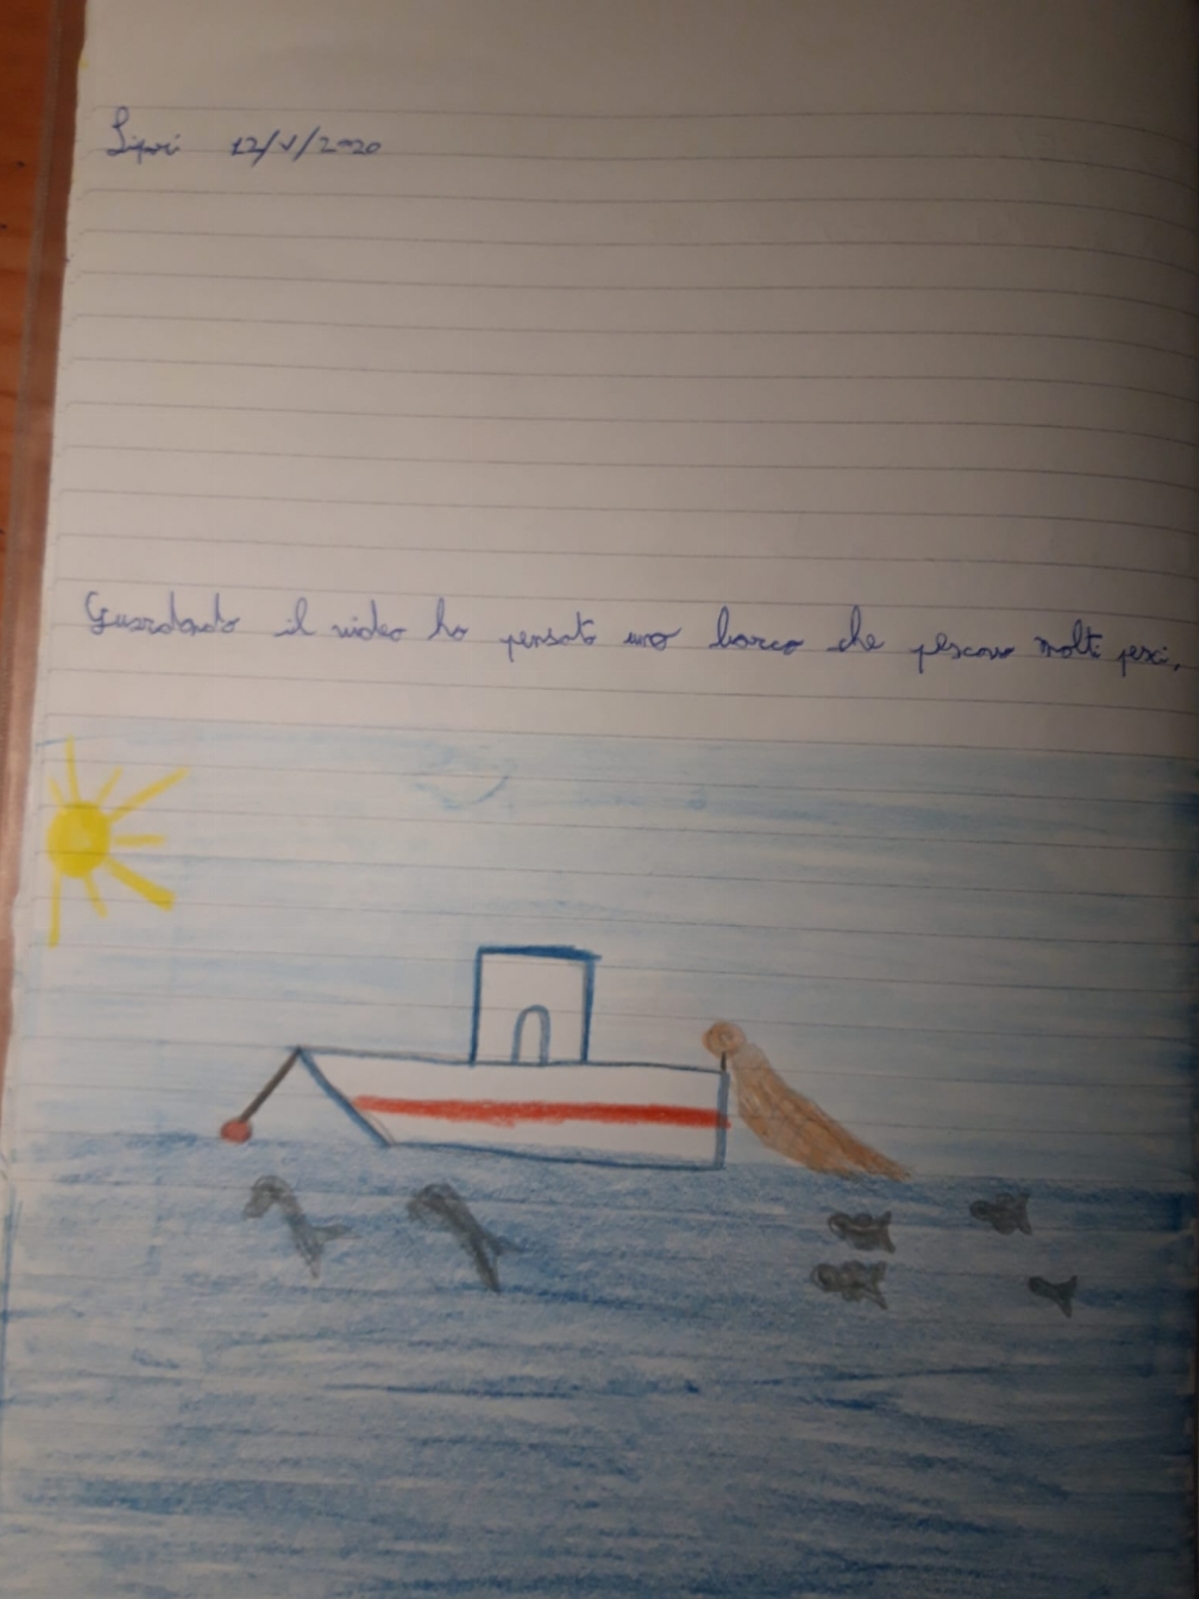 Lipari 12/V/2020
Guardando il video ho pensato una barca che pescava molti pesci.